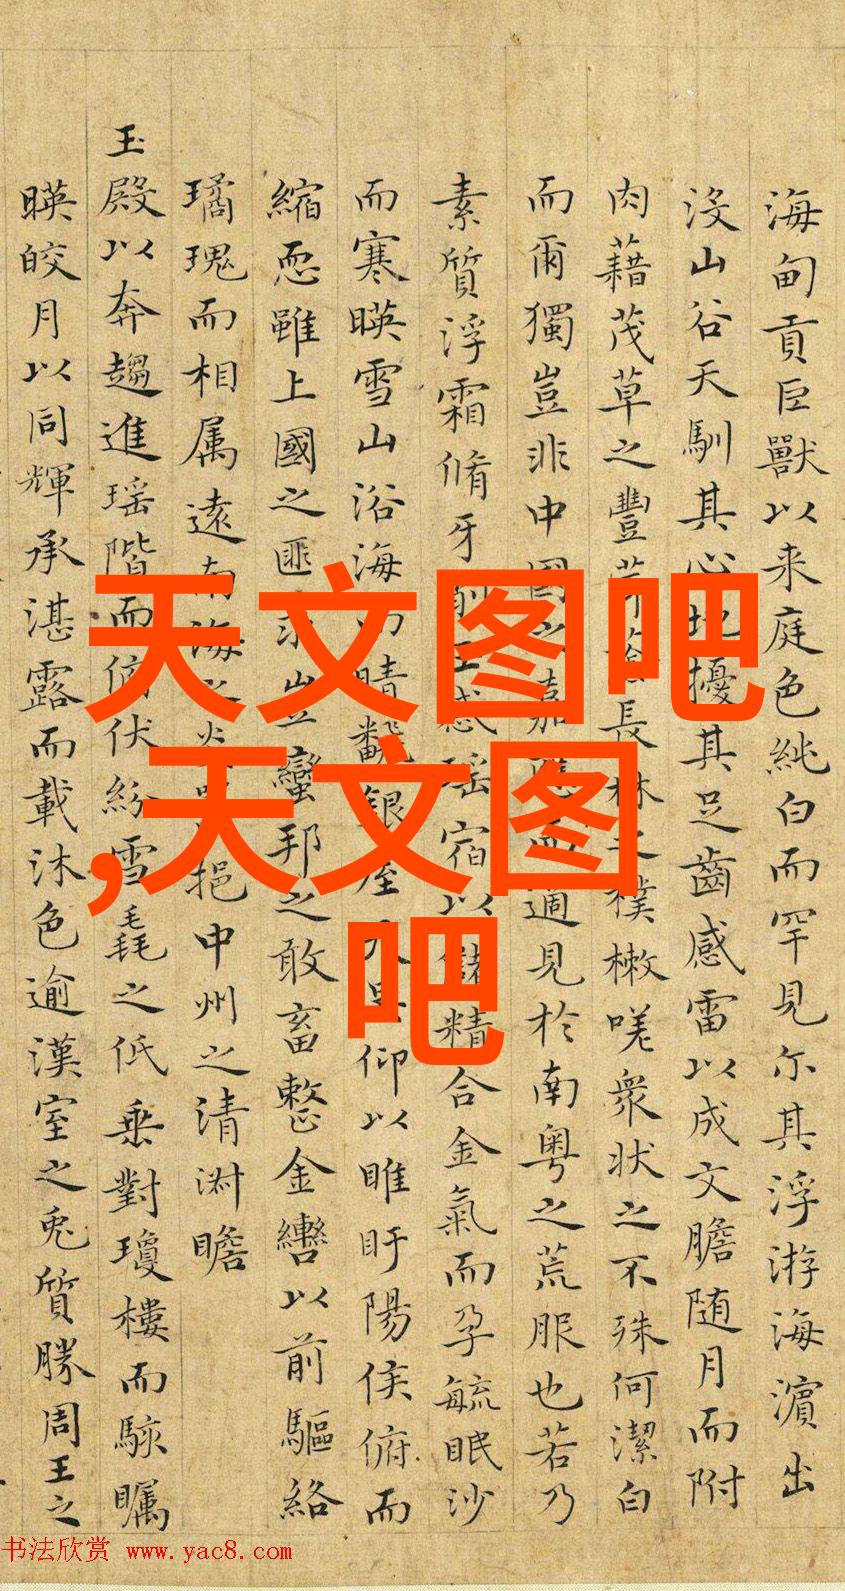 海甸貢巨獸以来庭色純白而罕見尔其浮游海濵出
没山谷天馴其心地擾其足齒感雷以成文膽随月而附
肉藉茂草之豐長林之樸樕嗟衆状之不殊何潔白
而爾獨豈非中國之嘉適見於南粤之荒服也若乃
素質浮霜脩牙削玉瑶宿以儲精合金氣而孕毓眠沙
而寒暎雪山浴海而晴翻銀屋仰以睢盱陽侯俯而
縮恧雖上國之匪求豈蠻邦之敢畜整金轡以前驅絡
璚瑰而相属遠南海之挹中州之清淑瞻
玉殿以奔趨進瑶階而俯伏紛雪毳之低垂對瓊樓而駭矚
暎皎月以同輝承湛露而載沐色逾漢室之兎質勝周王之
天文图吧
,天文图
吧
书法欣赏 www.yac8.com